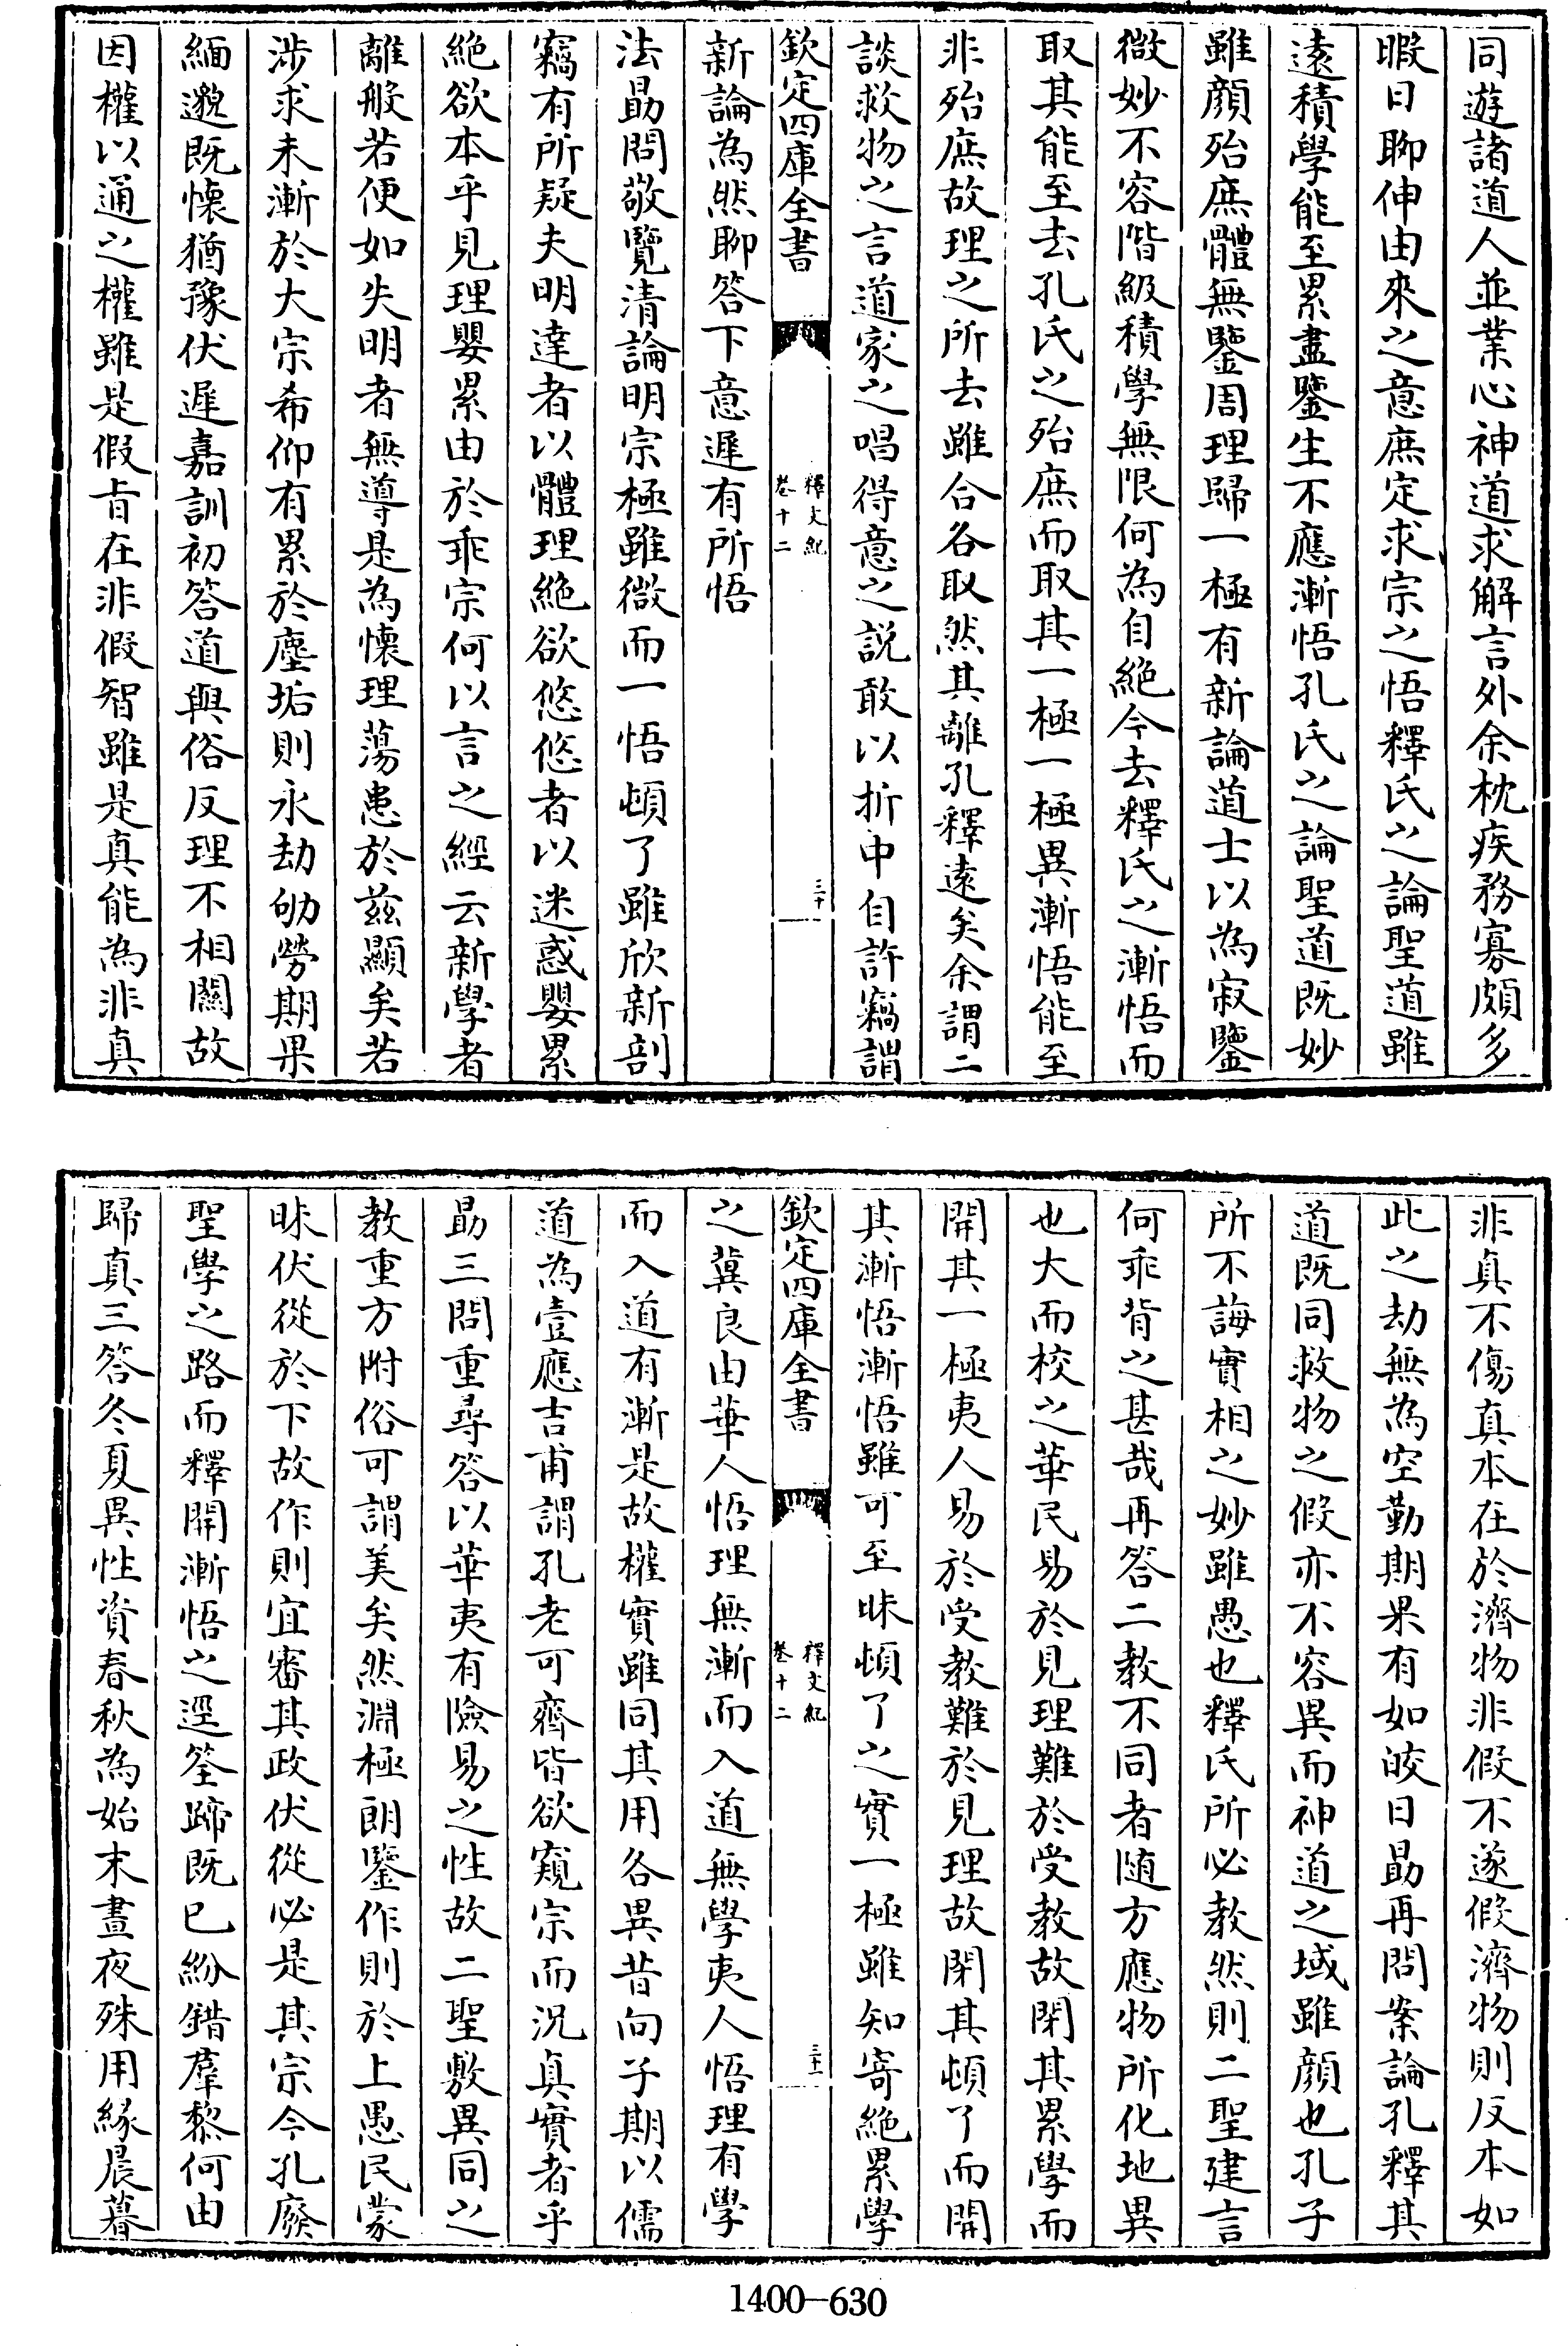 同遊諸道人並業心神道求解言外余枕疾務寡頗多
暇日聊伸由來之意庶定求宗之悟釋氏之論聖道雖
遠積學能至累盡鑒生不應漸悟孔氏之論聖道既妙
雖顔殆庶體無鑒周理歸一極有新論道士以為寂鑒
微妙不容階級積學無限何為自絶今去釋氏之漸悟而
取其能至去孔氏之殆庶而取其一極一極異漸悟能至
非殆庶故理之所去雖合各取然其離孔釋遠矣余謂二
談救物之言道家之唱得意之説敢以折中自許竊謂
欽定四庫全書
釋文紀
卷十二
三十
新論為然聊答下意遲有所悟
法勗問敬覽清論明宗極雖微而一悟頓了雖欣新剖
竊有所疑夫明達者以體理絶欲悠悠者以迷惑嬰累
絶欲本乎見理嬰累由於乖宗何以言之經云新學者
離般若便如失明者無導是為懷理蕩患於兹顯矣若
涉求未漸於大宗希仰有累於塵垢則永劫劬勞期果
緬邈既懐猶豫伏遲嘉訓初答道與俗反理不相關故
因權以通之權雖是假㫖在非假智雖是真能為非真
非真不傷真本在於濟物非假不遂假濟物則反本如
此之劫無為空勤期果有如皎日勗再問案論孔釋其
道既同救物之假亦不容異而神道之域雖顔也孔子
所不誨實相之妙雖愚也釋氏所必教然則二聖建言
何乖背之甚哉再答二教不同者随方應物所化地異
也大而校之華民易於見理難於受教故閉其累學而
開其一極夷人易於受教難於見理故閉其頓了而開
其漸悟漸悟雖可至昧頓了之實一極雖知寄絶累學
欽定四庫全書
釋文紀
卷十二
三十一
之冀良由華人悟理無漸而入道無學夷人悟理有學
而入道有漸是故權實雖同其用各異昔向子期以儒
道為壹應吉甫謂孔老可齊皆欲窺宗而況真實者乎
勗三問重尋答以華夷有險易之性故二聖敷異同之
教重方附俗可謂美矣然淵極朗鑒作則於上愚民蒙
昧伏從於下故作則宜審其政伏從必是其宗今孔廢
聖學之路而釋開漸悟之逕筌蹄既已紛錯羣黎何由
歸真三答冬夏異性資春秋為始末晝夜殊用緣晨暮
1400—630